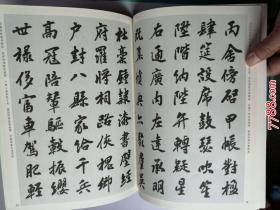 丙舍傍啟甲帳對楹
肆筵設席鼓瑟吹笙
陞階納陛弁轉疑星
右通廣內左達承明
既集墳典亦聚群英
杜稾鍾隸漆書壁經
府羅將相路俠槐卿
戶封八縣家給千兵
高冠陪輦驅轂振纓
世祿侈富車駕肥輕